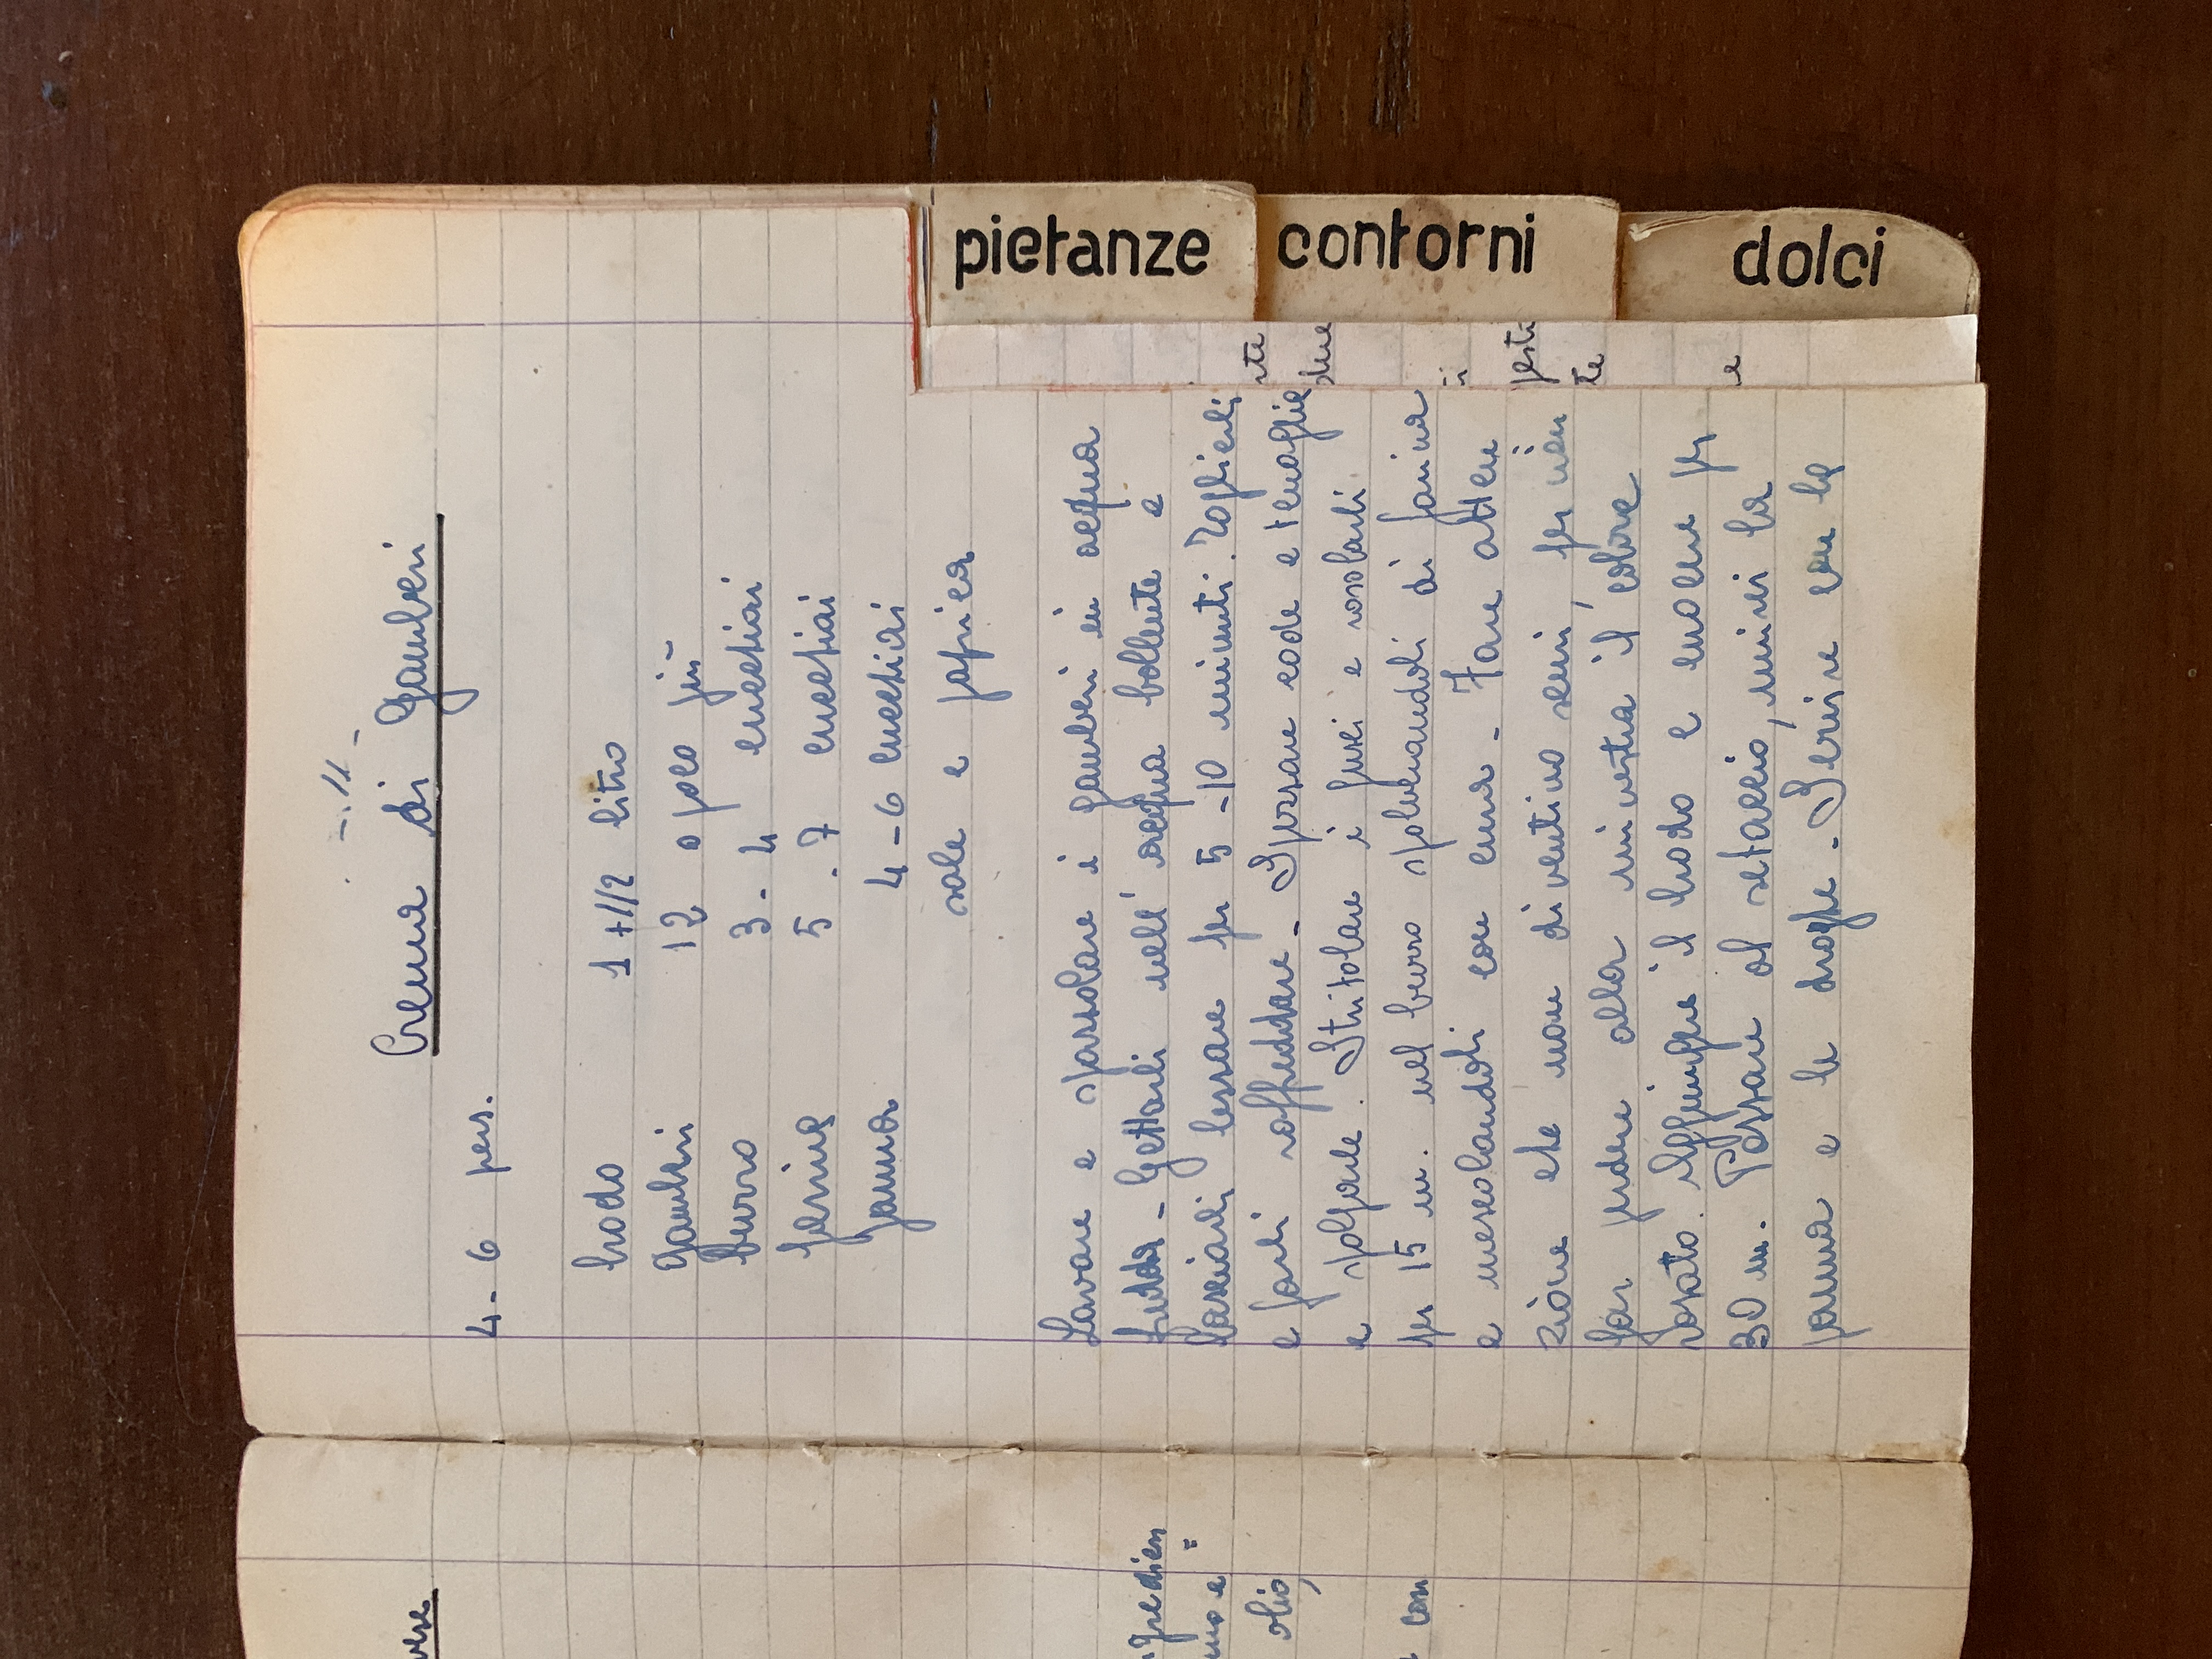 vese
ngredien
=
mo e
olio,
con
- 11 -
Crema di Gamberi
4 - 6 pers.
brodo 1 + 1/2 litro
gamberi 12 o poco più
burro 3 - 4 cucchiai
farina 5 - 7 cucchiai
panna 4 - 6 cucchiai
sale e paprica
Lavare e spazzolare i gamberi in acqua
fredda - Gettarli nell' acqua bollente e
lasciarli lessare per 5 - 10 minuti. Toglierli
e farli raffreddare - Spezzare code e tenaglie
e spolparle. Stritolare i gusci e rosolarli
per 15 m. nel burro spolverandoli di farina
e mescolandoli con cura - Fare atten
zione che non diventino scuri, per non
far perdere alla minestra il colore
rosato. Aggiungere il brodo e cuocere per
30 m. Passare al setaccio, unirvi la
panna e le droghe - Servire con la
nte
te
e
pietanze
contorni
dolci